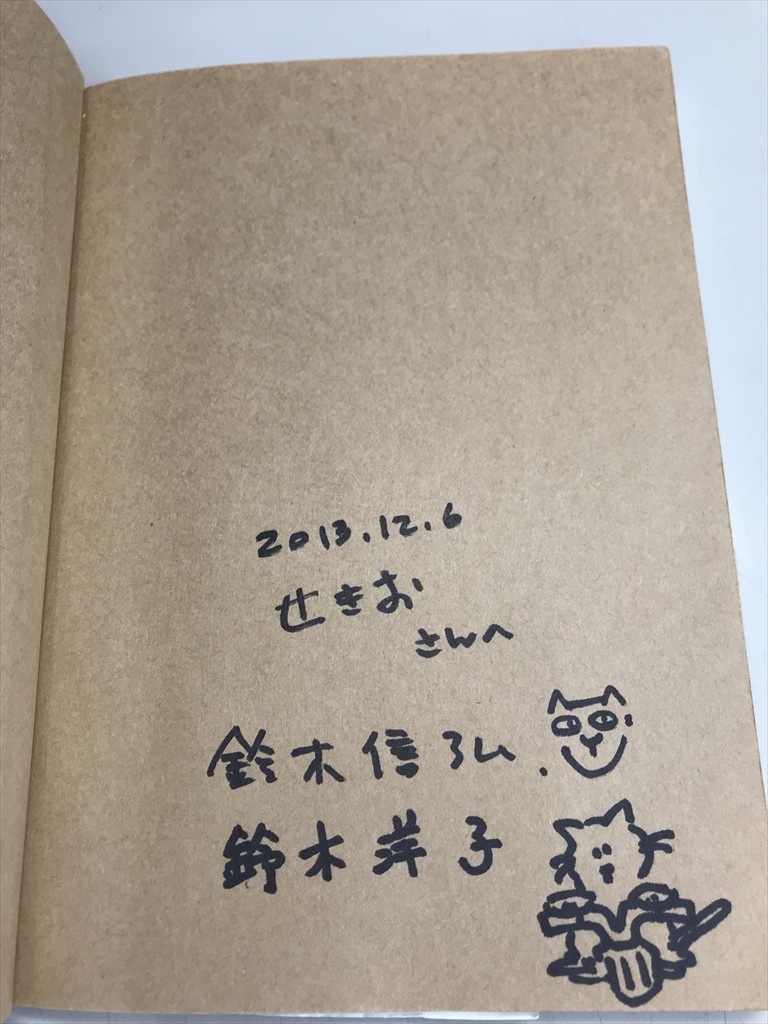 2013.12.6
せきお
さんへ
鈴木信弘.
鈴木洋子